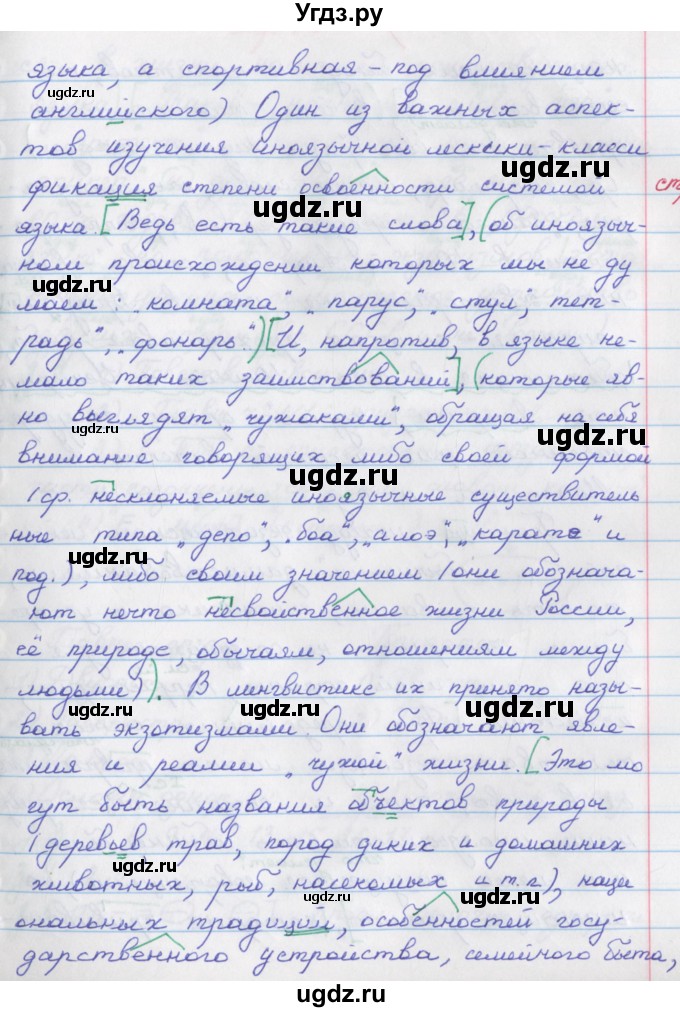 Угдз.ру
языка, а спортивная – под влиянием
английского) Один из важных аспек-
тов изучения иноязычной лексики – класси
фикация степени освоенности системой
языка. [Ведь есть такие слова], (об иноязыч-
ном происхождении которых мы не ду
маем: „комната", „парус", „стул", „тет-
радь", „фонарь".) [И, напротив, в языке не-
мало таких заимствований], (которые яв-
но выглядят „чужаками", обращая на себя
внимание говорящих либо своей формой
(ср. несклоняемые иноязычные существитель
ные типа „депо", „боа", „алоэ", „каратэ" и
под.), либо своим значением (они обознача-
ют нечто несвойственное жизни России,
её природе, обычаям, отношениям между
людьми)). В лингвистике их принято назы-
вать экзотизмами. Они обозначают явле-
ния и реалии „чужой" жизни. [Это мо
гут быть названия объектов природы
(деревьев трав, пород диких и домашних
животных, рыб, насекомых и т.д.), наци
ональных традиций, особенностей госу-
дарственного устройства, семейного быта,